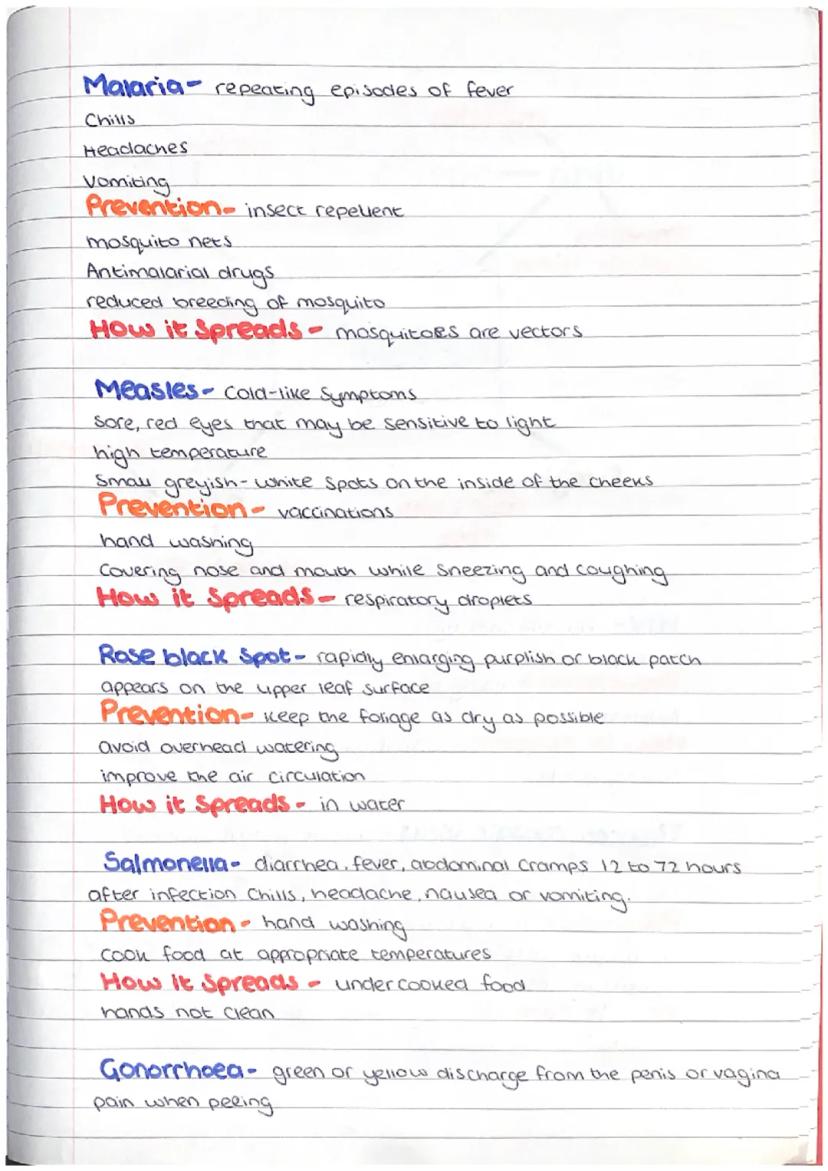 Malaria- repeating episodes of fever
Chills
Headaches
Vomiting
Prevention- insect repellent
mosquito nets
Antimalarial drugs
reduced breeding of mosquito
How it Spreads - mosquitoes are vectors
Measles- Cold-like Symptoms
Sore, red eyes that may be sensitive to light
high temperature
Small greyish-white spots on the inside of the cheeks
Prevention- vaccinations
hand washing
Covering nose and mouth while sneezing and coughing
How it Spreads- respiratory droplets
Rose black spot- rapidly enlarging purplish or black patch
appears on the upper leaf surface
Prevention- Keep the foliage as dry as possible
avoid overhead watering
improve the air circulation
How it Spreads- in water
Salmonella- diarrhea, fever, abdominal cramps 12 to 72 hours
after infection Chills, headache, nausea or vomiting.
Prevention- hand washing
Cook food at appropriate temperatures
How it Spreads - undercooked food
hands not clean
Gonorrhoea- green or yellow discharge from the penis or vagina
pain when peeing